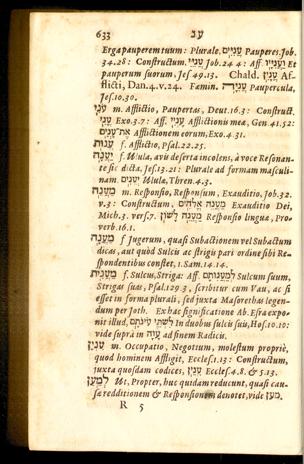 633 ענ
Erga pauperem tuum: Plurale, עֲנִיִּים Pauperes. Job.
34.28: Constructum, עֲנִיֵּי Job. 24 4: Aff. וַעֲנִיָּיו Et
pauperum suorum, Jes 49.13. Chald. עֲנַיִן Af-
flicti, Dan. 4. v. 24. Fœmin. עֲנִיָּה Paupercula,
Jes. 10.30.
עֳנִי m. Afflictio, Paupertas, Deut. 16.3: Construct.
עֳנִי Exo. 3.7: Aff. עָנְיִי Afflictionis mea, Gen 41.52:
אֶת־עָנְיָם Afflictionem eorum, Exo. 4 31.
עֱנוּת f. Afflictio, Psal. 22.25.
יַעֲנָה f. Ulula, avis deserta incolens, à voce Resonan-
te sic dicta, Jes. 13.21: Plurale ad formam masculi-
nam יְעֵנִים Ulula, Thren. 4.3.
מַעֲנֶה m. Responsio, Responsum, Exauditio, Job. 32.
v. 3: Constructum, מַעֲנֵה אֱלֹהִים Exauditio Dei,
Mich. 3. vers. 7. מַעֲנֵה לָשׁוֹן Responsio lingua, Pro-
verb. 16.1.
מַעֲנָה f Jugerum, quasi Subactionem vel Subactum
dicas, aut quòd Sulcis ac strigis pari ordine sibi Re-
spondentibus constet, 1. Sam. 14.14.
מַעֲנִית f. Sulcus, Striga: Aff. לְמַעֲנִיתָם Sulcum suum,
Strigas suas, Psal. 129 3, scribitur cum Vau, ac si
esset in forma plurali, sed juxta Masorethas legen-
dum per Joth. Ex hac significatione Ab. Esra expo-
nit illud, לִשְׁתֵּי עוֹנֹתָם In duobus sulcis suis, Hos. 10.10:
vide suprà in עוה in fine Radicis.
עִנְיָן m. Occupatio, Negotium, molestum propriè,
quod hominem Affligit, Eccles. 1.13: Constructum,
juxta quosdam codices, עִנְיַן Eccles. 4.8. & 5.13.
לְמַעַן Ut, Propter, huc quidam reducunt, quasi cau-
sa redditionem & Responsionem denotet, vide מען
R 5